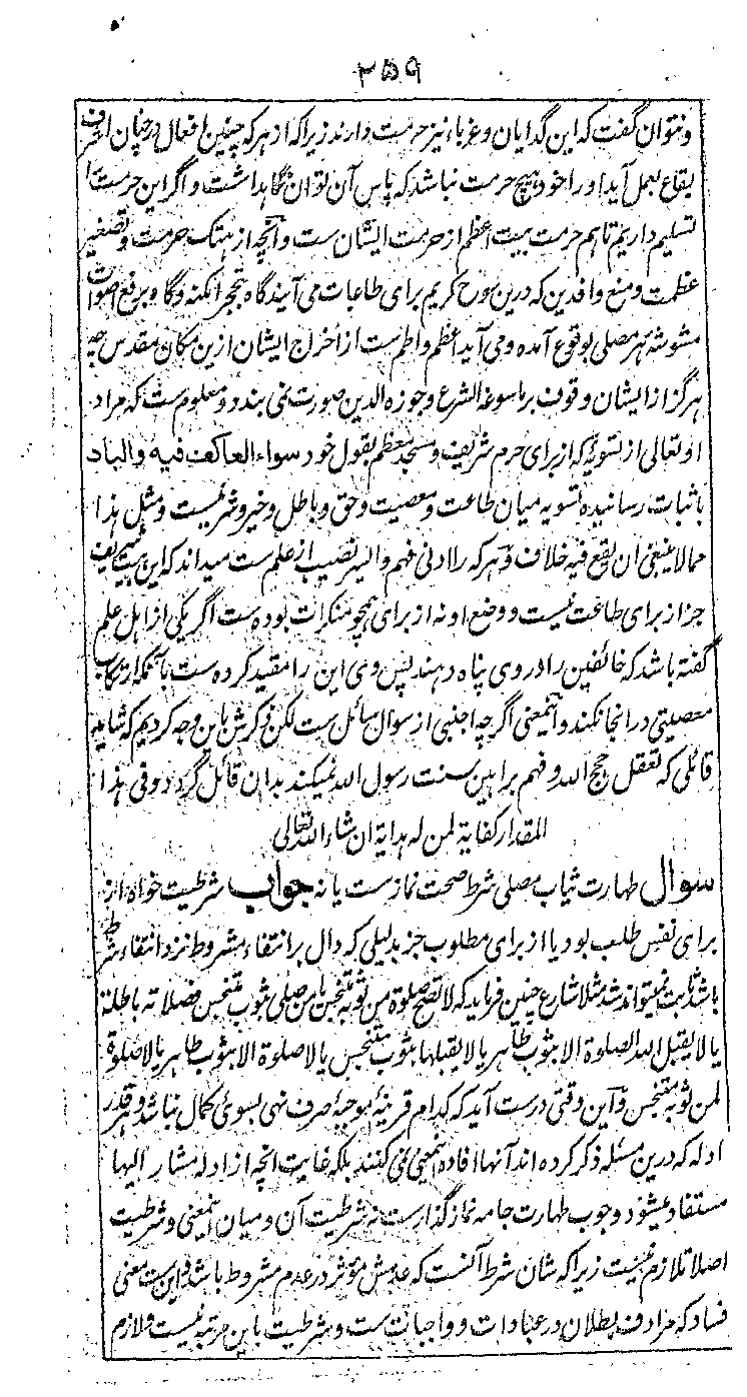 ۲۵۹
ونتوان گفت که این گدایان و غرباء نیز حرمت دارند زیرا که از هر که چنین افعال در چنان اشرف
بقاع بعمل آید او را خود هیچ حرمت نباشد که پاس آن توان نگاهداشت و اگر این حرمت را
تسلیم داریم تاهم حرمت بیت اعظم از حرمت ایشان ست و آنچه از هتک حرمت و تصغیر
عظمت و منع وافدین که درین سوح کریم برای طاعات می آیند گاه بتجر امکنه و گاه برفع اصوات
مشوشه بر مصلی بوقوع آمده و می آید اعظم و اطم ست از اخراج ایشان ازین مکان مقدس چه
هرگز از ایشان وقوف بر ماسوغه الشرع وجوزه الدین صورت نمی بندد و معلوم ست که مراد
او تعالی از تسویه که از برای حرم شریف و مسجد معظم بقول خود سواء العاکف فیه والباد
باثبات رسانیده تسویه میان طاعت و معصیت و حق و باطل و خیر و شر نیست و مثل هذا
مما لا ینبغی ان یقع فیه خلاف و هر که را ادنی فهم و ایسر نصیب از علم ست میداند که این بیت شریف
جز از برای طاعت نیست و وضع او نه از برای همچو منکرات بوده ست اگر یکی از اهل علم
گفته باشد که خائفین را در وی پناه دهند پس وی این را مقید کرده ست بآنکه ارتکاب
معصیتی در انجا نکنند و اینمعنی اگر چه اجنبی از سوال سائل ست لکن ذکرش باین وجه کردیم که شاید
قائلی که تعقل حجج الله و فهم براهین سنت رسول الله نمیکند بدان قائل گردد وفی هذا
المقدار کفایة لمن له هدایة ان شاء الله تعالی
سوال طهارت ثیاب مصلی شرط صحت نماز ست یا نه جواب شرطیت خواه از
برای نفس طلب بود یا از برای مطلوب جز بدلیلی که دال بر انتفاء مشروط نزد انتفاء شرط
باشد ثابت نمیتواند شد مثلا شارع چنین فرماید که لا تصح صلوة من ثوبه متنجس یا من صلی بثوب متنجس فصلاته باطلة
یا لا یقبل الله الصلوة الا بثوب طاهر یا لا یقبلها بثوب متنجس یا لا صلوة الا بثوب طاهر یا لا صلوة
لمن ثوبه متنجس و این وقتی درست آید که کدام قرینهٔ موجبهٔ صرف نهی بسوی کمال نباشد و هر قدر
ادله که درین مسئله ذکر کرده اند آنها افاده اینمعنی نمی کنند بلکه غایت انچه از ادله مشار الیها
مستفاد میشود وجوب طهارت جامه نماز گذار ست نه شرطیت آن و میان اینمعنی و شرطیت
اصلا تلازم نیست زیرا که شان شرط آنست که عدمش مؤثر در عدم مشروط باشد و این ست معنی
فساد که مرادف بطلان در عبادات و واجبات ست و شرطیت باین مرتبه نیست و لازم